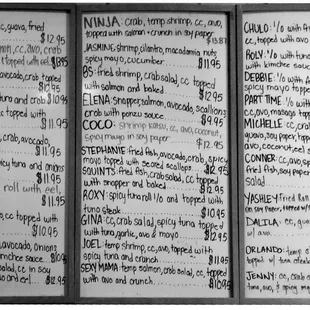 guava, fried
$12.95
avo, crab
topped with eel, $11.95
avocado, crab topped
$10.95
tuna and crab $10.95
topped with
$11.95
crab, avocado,
$11.95
spicy tuna and onions
$11.95
roll with eel,
$11.95
cc topped with
$10.95
avocado, onions
kimchee sauce. $10.95
salad, cc in soy
and eel. $12.95
NINJA: crab, temp shrimp, cc, avo,
topped with salmon + crunch in soy paper
$13.87
JASMINE: shrimp, cilantro, macadamia nuts
spicy mayo, cucumber $11.95
B5: fried shrimp, crab salad, cc topped
with salmon and baked $12.95
ELENA: snapper, salmon, avocado, scallions
crab with ponzu sauce. $9.95
COCO: shrimp katsu, cc, avo, coconut,
spicy mayo in soy paper $12.95
STEPHANIE: fried fish, avocado, crab, spicy
mayo topped with seared scallops. $12.95
SQUINTS: fried fish, crab salad, cc topped
with snapper and baked $12.95
ROXY: spicy tuna roll i/o and topped with
tuna steak $10.95
GINA: cc, crab salad, spicy tuna topped
with tuna, garlic, avo & mayo $12.95
JOEL: temp shrimp, cc, avo, topped with
spicy tuna and crunch $11.95
SEXY MAMA: temp salmon, crab salad, cc, topped
with avo and crunch. $10.95
CHULO: i/o with
cc, topped with avo
ROLY: i/o with
with kimchee
DEBBIE: i/o with
spicy mayo topped
PART TIME: i/o with
cc, avo, masago
MICHELLE: cc, crab
guava, soy paper, topped
avo, coconut, eel
CONNER: cc, avo,
fried fish, soy paper
salad
YASHLEY: fried
in soy paper, topped w/
DALILA: cc, guava
w/ avo.
ORLANDO: temp
topped w/ tuna
JENNY: cc, crab
tuna, avo, & spicy